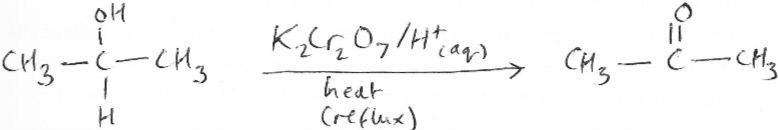 OH
CH3 — C — CH3
H
K2Cr2O7/H+(aq)
heat
(reflux)
O
CH3 — C — CH3